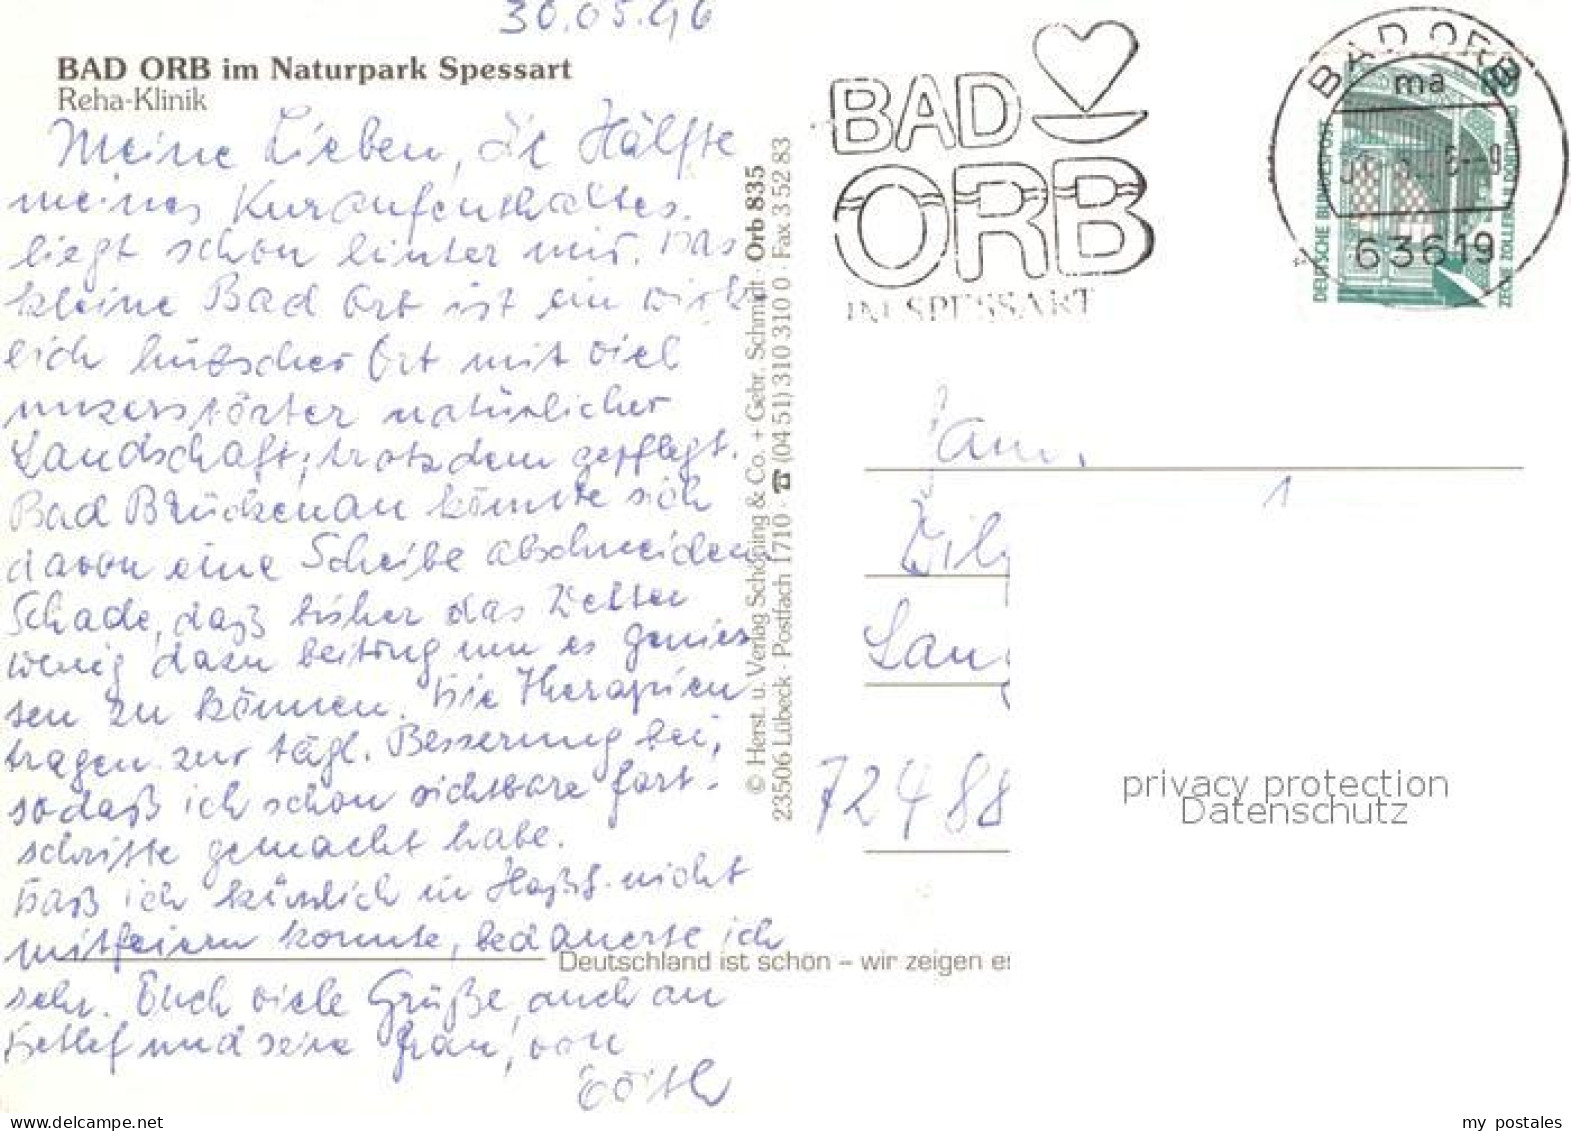 30.05.96
BAD ORB im Naturpark Spessart
Reha-Klinik
Meine Lieben, die Hälfte
meines Kuraufenthaltes
liegt schon hinter mir. Das
kleine Bad Orb ist ein wirk
lich hübscher Ort mit viel
unzerstörter natürlicher
Landschaft; trotzdem gepflegt.
Bad Brückenau könnte sich
davon eine Scheibe abschneiden
Schade, daß bisher das Wetter
wenig dazu beitrug um es genies
sen zu können. Die Therapien
tragen zur tägl. Besserung bei,
sodaß ich schon sichtbare fort-
schritte gemacht habe.
Daß ich kürzlich in Haßf. nicht
mitfeiern konnte, bedauerte ich
sehr. Euch viele Grüße, auch an
Detlef und seine Frau, von
© Herst. u. Verlag Schöning & Co. + Gebr. Schmidt · Orb 835
23506 Lübeck · Postfach 1710 · ☎ (04 51) 310 310 0 · Fax 3 52 83
Deutschland ist schön – wir zeigen es
BAD
ORB
IM SPESSART
BAD ORB
ma
63619
DEUTSCHE BUNDESPOST
ZECHE ZOLLERN II DORTMUND
Fam.
72488
privacy protection
Datenschutz
my postales